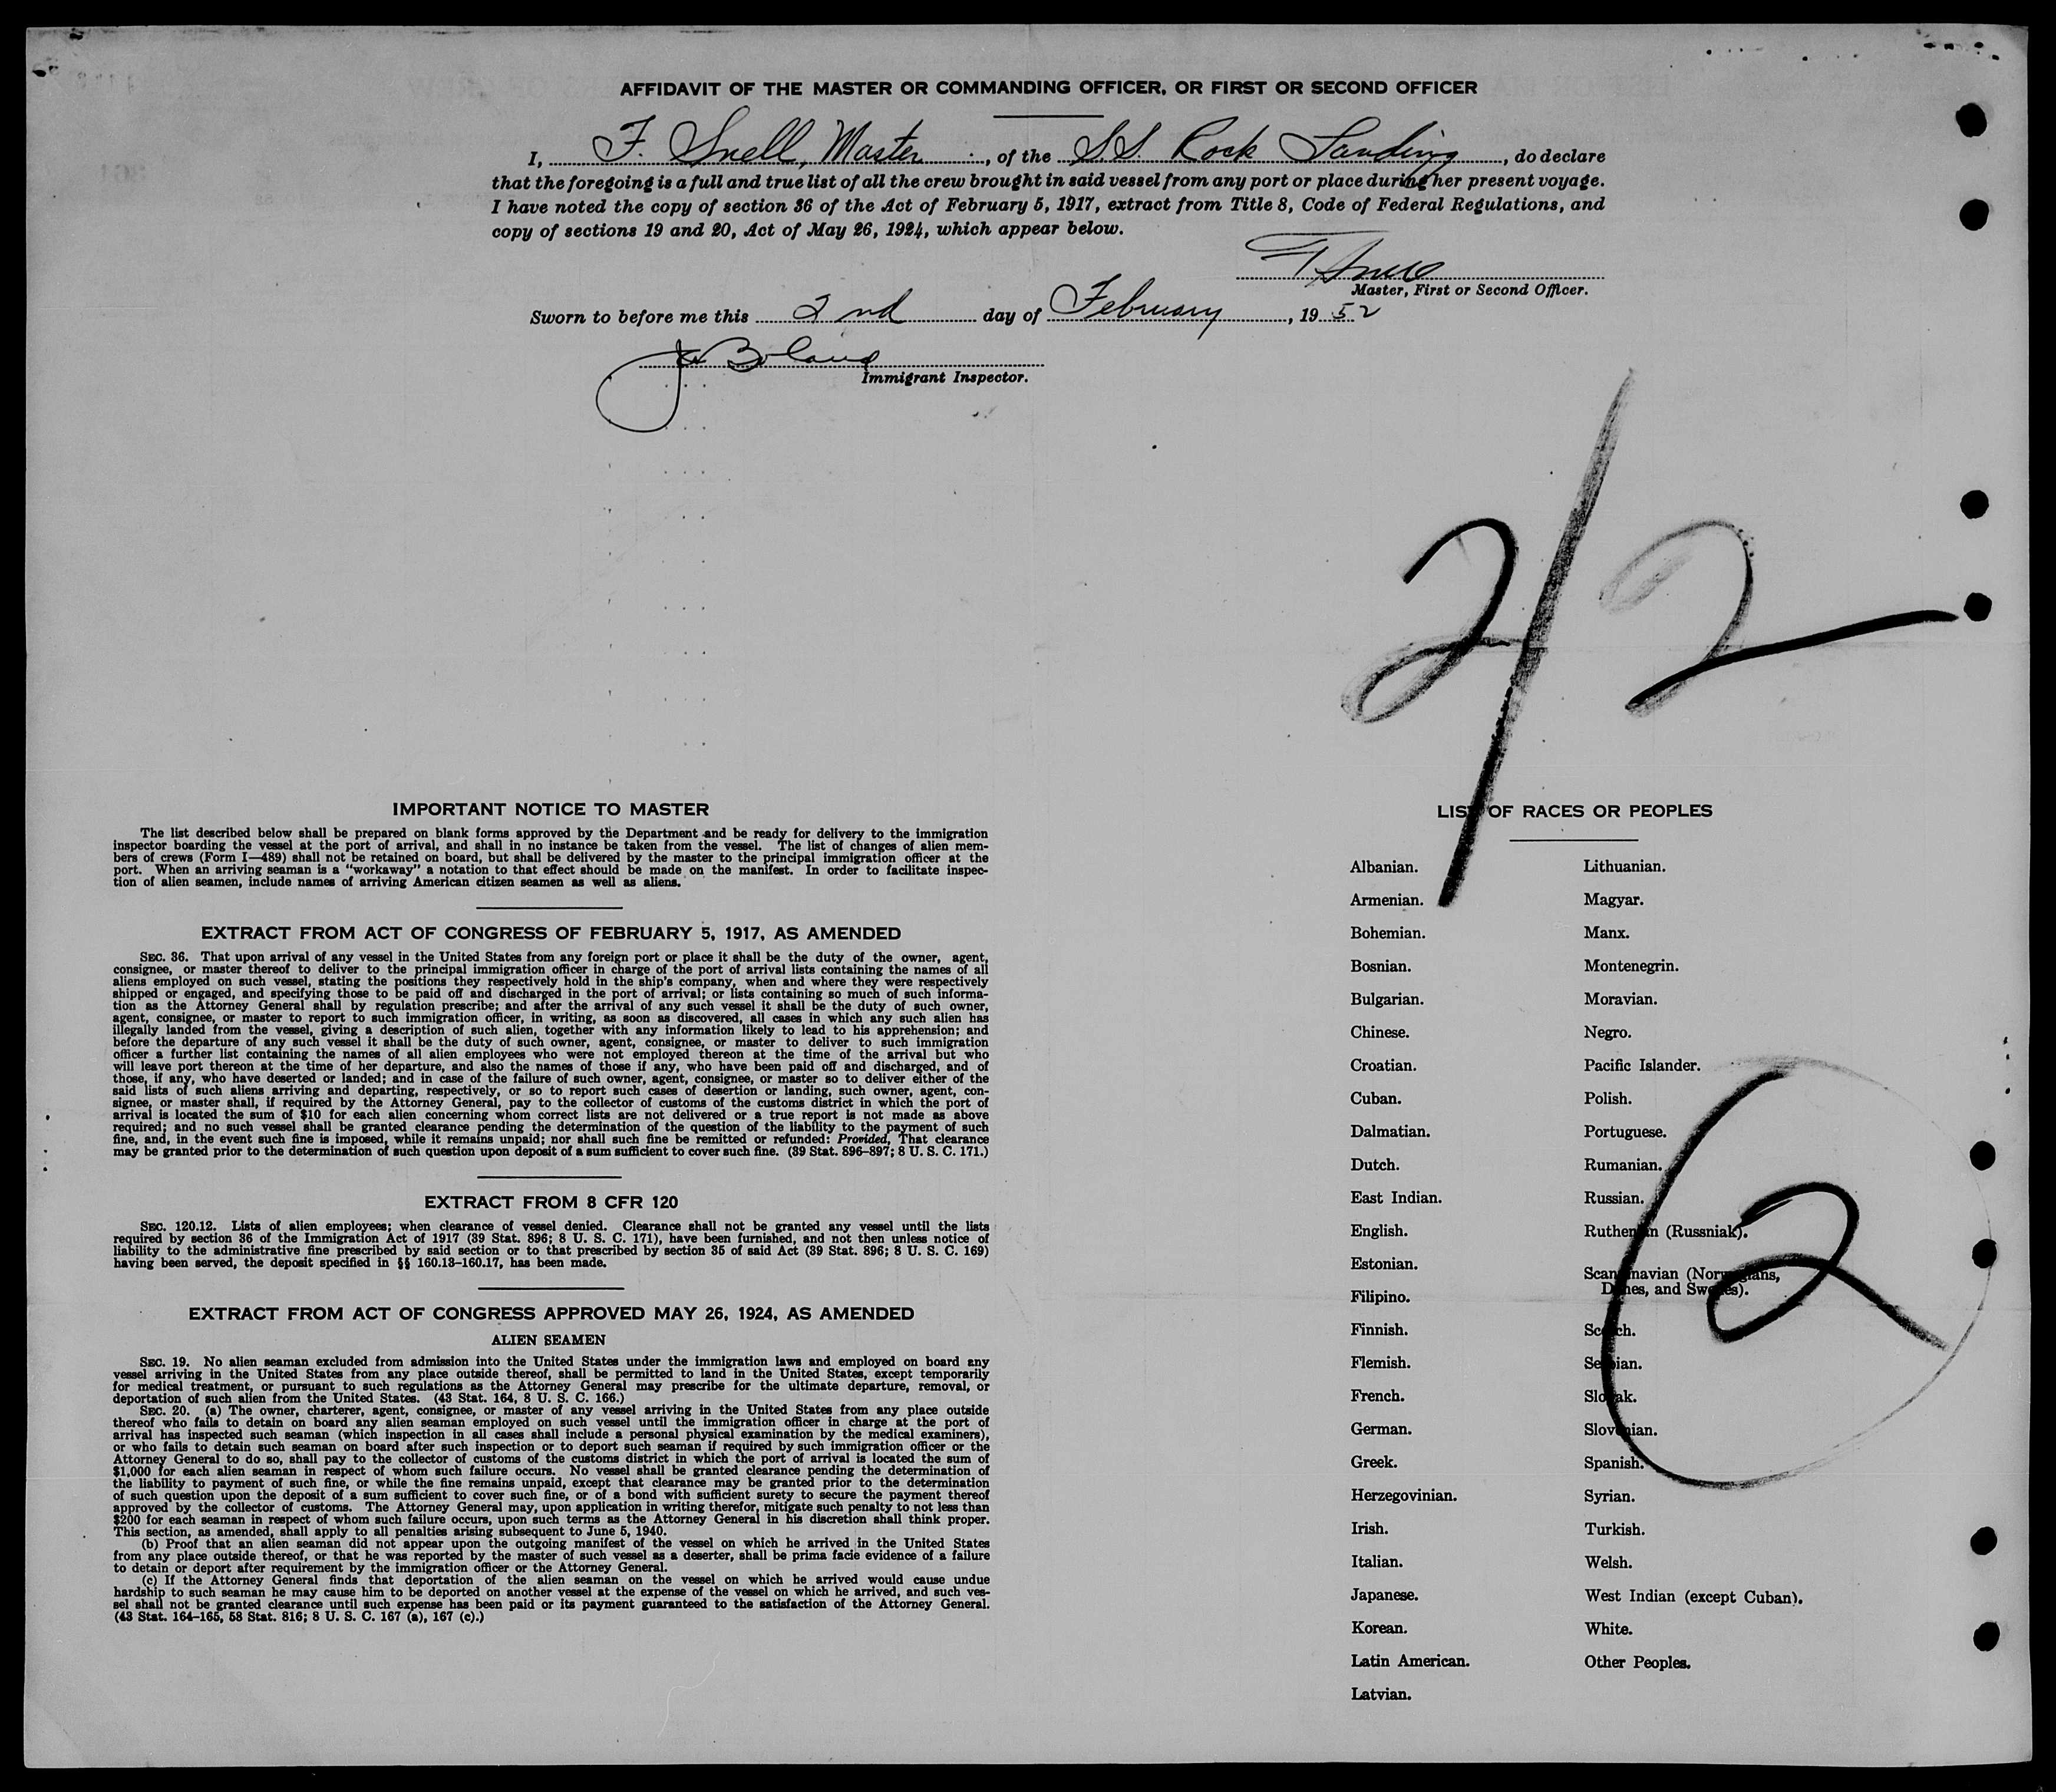 AFFIDAVIT OF THE MASTER OR COMMANDING OFFICER, OR FIRST OR SECOND OFFICER
I, F. Snell, Master, of the S.S. Rock Landing, do declare
that the foregoing is a full and true list of all the crew brought in said vessel from any port or place during her present voyage.
I have noted the copy of section 36 of the Act of February 5, 1917, extract from Title 8, Code of Federal Regulations, and
copy of sections 19 and 20, Act of May 26, 1924, which appear below.
F Snell
Master, First or Second Officer.
Sworn to before me this 2nd day of February, 1952
Boland
Immigrant Inspector.
2/2
IMPORTANT NOTICE TO MASTER
The list described below shall be prepared on blank forms approved by the Department and be ready for delivery to the immigration
inspector boarding the vessel at the port of arrival, and shall in no instance be taken from the vessel. The list of changes of alien mem-
bers of crews (Form I—489) shall not be retained on board, but shall be delivered by the master to the principal immigration officer at the
port. When an arriving seaman is a "workaway" a notation to that effect should be made on the manifest. In order to facilitate inspec-
tion of alien seamen, include names of arriving American citizen seamen as well as aliens.
EXTRACT FROM ACT OF CONGRESS OF FEBRUARY 5, 1917, AS AMENDED
SEC. 36. That upon arrival of any vessel in the United States from any foreign port or place it shall be the duty of the owner, agent,
consignee, or master thereof to deliver to the principal immigration officer in charge of the port of arrival lists containing the names of all
aliens employed on such vessel, stating the positions they respectively hold in the ship's company, when and where they were respectively
shipped or engaged, and specifying those to be paid off and discharged in the port of arrival; or lists containing so much of such informa-
tion as the Attorney General shall by regulation prescribe; and after the arrival of any such vessel it shall be the duty of such owner,
agent, consignee, or master to report to such immigration officer, in writing, as soon as discovered, all cases in which any such alien has
illegally landed from the vessel, giving a description of such alien, together with any information likely to lead to his apprehension; and
before the departure of any such vessel it shall be the duty of such owner, agent, consignee, or master to deliver to such immigration
officer a further list containing the names of all alien employees who were not employed thereon at the time of the arrival but who
will leave port thereon at the time of her departure, and also the names of those if any, who have been paid off and discharged, and of
those, if any, who have deserted or landed; and in case of the failure of such owner, agent, consignee, or master so to deliver either of the
said lists of such aliens arriving and departing, respectively, or so to report such cases of desertion or landing, such owner, agent, con-
signee, or master shall, if required by the Attorney General, pay to the collector of customs of the customs district in which the port of
arrival is located the sum of $10 for each alien concerning whom correct lists are not delivered or a true report is not made as above
required; and no such vessel shall be granted clearance pending the determination of the question of the liability to the payment of such
fine, and, in the event such fine is imposed, while it remains unpaid; nor shall such fine be remitted or refunded: Provided, That clearance
may be granted prior to the determination of such question upon deposit of a sum sufficient to cover such fine. (39 Stat. 896–897; 8 U. S. C. 171.)
EXTRACT FROM 8 CFR 120
SEC. 120.12. Lists of alien employees; when clearance of vessel denied. Clearance shall not be granted any vessel until the lists
required by section 36 of the Immigration Act of 1917 (39 Stat. 896; 8 U. S. C. 171), have been furnished, and not then unless notice of
liability to the administrative fine prescribed by said section or to that prescribed by section 35 of said Act (39 Stat. 896; 8 U. S. C. 169)
having been served, the deposit specified in §§ 160.13–160.17, has been made.
EXTRACT FROM ACT OF CONGRESS APPROVED MAY 26, 1924, AS AMENDED
ALIEN SEAMEN
SEC. 19. No alien seaman excluded from admission into the United States under the immigration laws and employed on board any
vessel arriving in the United States from any place outside thereof, shall be permitted to land in the United States, except temporarily
for medical treatment, or pursuant to such regulations as the Attorney General may prescribe for the ultimate departure, removal, or
deportation of such alien from the United States. (43 Stat. 164, 8 U. S. C. 166.)
SEC. 20. (a) The owner, charterer, agent, consignee, or master of any vessel arriving in the United States from any place outside
thereof who fails to detain on board any alien seaman employed on such vessel until the immigration officer in charge at the port of
arrival has inspected such seaman (which inspection in all cases shall include a personal physical examination by the medical examiners),
or who fails to detain such seaman on board after such inspection or to deport such seaman if required by such immigration officer or the
Attorney General to do so, shall pay to the collector of customs of the customs district in which the port of arrival is located the sum of
$1,000 for each alien seaman in respect of whom such failure occurs. No vessel shall be granted clearance pending the determination of
the liability to payment of such fine, or while the fine remains unpaid, except that clearance may be granted prior to the determination
of such question upon the deposit of a sum sufficient to cover such fine, or of a bond with sufficient surety to secure the payment thereof
approved by the collector of customs. The Attorney General may, upon application in writing therefor, mitigate such penalty to not less than
$200 for each seaman in respect of whom such failure occurs, upon such terms as the Attorney General in his discretion shall think proper.
This section, as amended, shall apply to all penalties arising subsequent to June 5, 1940.
(b) Proof that an alien seaman did not appear upon the outgoing manifest of the vessel on which he arrived in the United States
from any place outside thereof, or that he was reported by the master of such vessel as a deserter, shall be prima facie evidence of a failure
to detain or deport after requirement by the immigration officer or the Attorney General.
(c) If the Attorney General finds that deportation of the alien seaman on the vessel on which he arrived would cause undue
hardship to such seaman he may cause him to be deported on another vessel at the expense of the vessel on which he arrived, and such ves-
sel shall not be granted clearance until such expense has been paid or its payment guaranteed to the satisfaction of the Attorney General.
(43 Stat. 164–165, 58 Stat. 816; 8 U. S. C. 167 (a), 167 (c).)
LIST OF RACES OR PEOPLES
Albanian.
Armenian.
Bohemian.
Bosnian.
Bulgarian.
Chinese.
Croatian.
Cuban.
Dalmatian.
Dutch.
East Indian.
English.
Estonian.
Filipino.
Finnish.
Flemish.
French.
German.
Greek.
Herzegovinian.
Irish.
Italian.
Japanese.
Korean.
Latin American.
Latvian.
Lithuanian.
Magyar.
Manx.
Montenegrin.
Moravian.
Negro.
Pacific Islander.
Polish.
Portuguese.
Rumanian.
Russian.
Ruthenian (Russniak).
Scandinavian (Norwegians,
Danes, and Swedes).
Scotch.
Serbian.
Slovak.
Slovenian.
Spanish.
Syrian.
Turkish.
Welsh.
West Indian (except Cuban).
White.
Other Peoples.
2